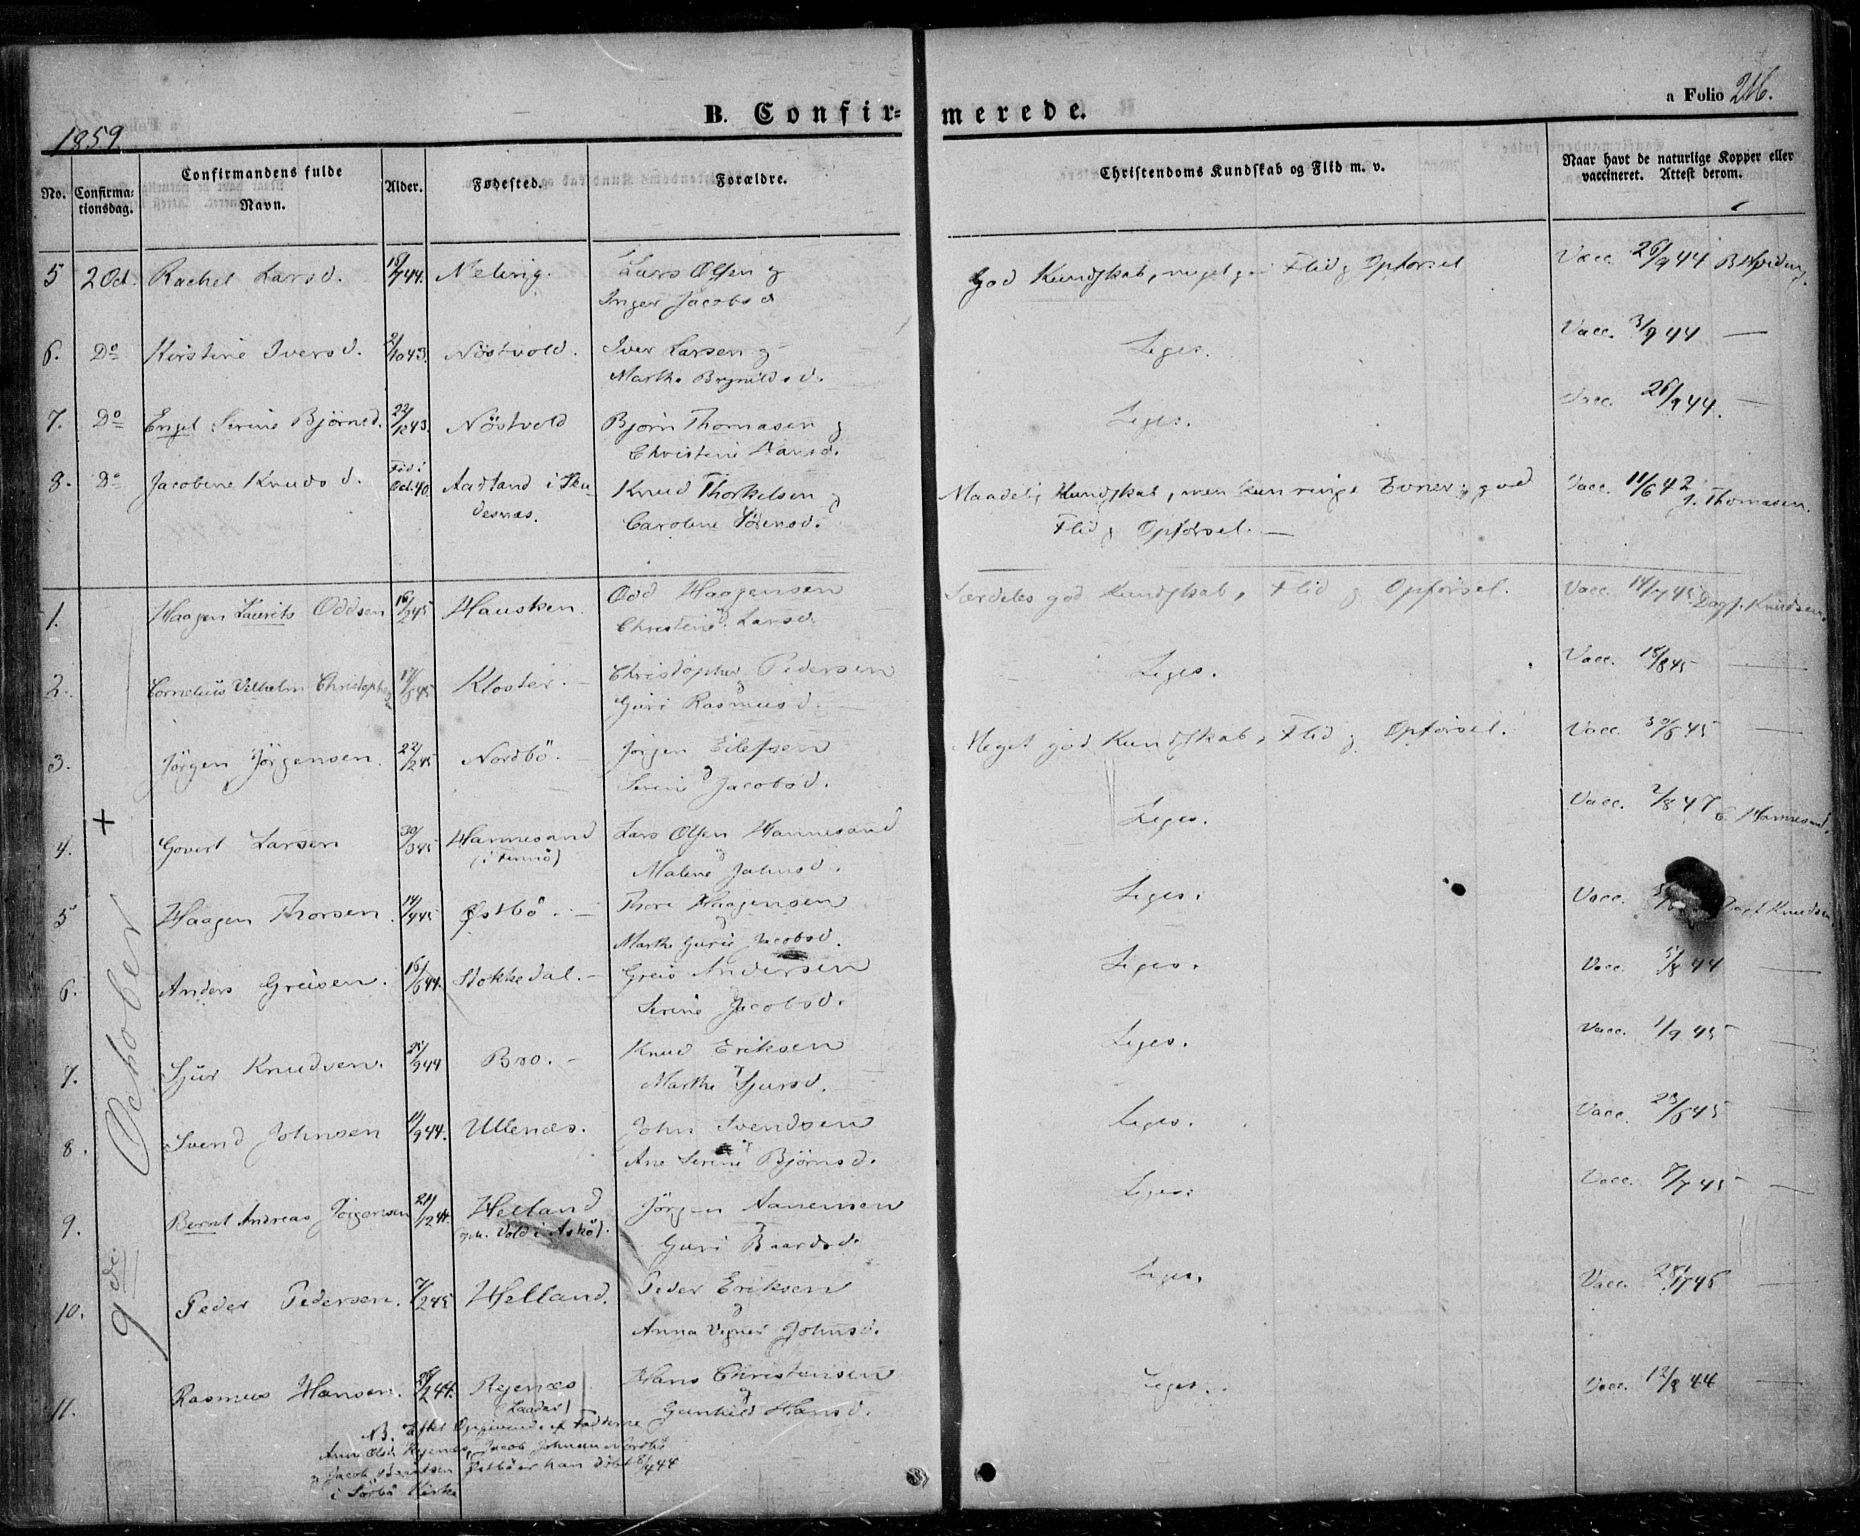 a Folio 216.
B. Confir=merede.
1859
No. Confirmationsdag. Confirmandens fulde Navn. Alder. Fødested. Forældre. Christendoms Kundskab og Flid m. v. Naar havt de naturlige Kopper eller vaccineret. Attest derom.
5 2 Oct. Rachel Larsd. 44. Lars Olsen og God Kundskab, meget god Flid og Opførsel Vacc. 26/9 44
Inger Jacobsd
6. Do Kirstine Iversd. 2/10 43. Nöstvold. Iver Larsen og Leges. Vacc. 3/9 44 —
Marthe Brynildsd.
7. Do Engel Serine Björnsd. 22/12 43. Nöstvold Bjorn Thomasen og Leges. Vacc. 26/9 44. —
Christine Hansd.
8. Do Jacobine Knudsd. Föd i Oct. 40. Aadland i Sku Knud Thorkelsen og Maadelig Kundskab, men kun ringe Evner, god Vacc. 11/6 42 J. Thomasen.
desnæs. Caroline Sörensd. Flid og Opförsel. —
9de October
1. Haagen Laurits Oddsen 16/2 45 Hausken. Odd Haagensen Særdeles god Kundskab, Flid og Opförsel. Vacc. 14/7 45 Dagf. Knudsen.
og Christine Larsd.
2. Cornelius Vilhelm Christophs 17/5 45 Kloster. — Christopher Pedersen Leges. Vacc. 18/8 45 —
og Guri Rasmusd.
3. Jörgen Jörgensen. 22/2 45 Nordbö. — Jörgen Eilefsen Meget god Kundskab, Flid og Opförsel. Vacc. 30/6 45 —
og Serine Jacobsd.
4. + Govert Larsen 30/3 45 Hannesand Lars Olsen Hannesand Leges. Vacc. 2/8 47 E. Hannesand.
(i Finnö) og Malene Johnsd.
5 Haagen Thorsen. 14/4 45 Østbö. — Thore Haagensen Leges. Vacc. Dagf. Knudsen
og Marthe Gurie Jacobsd.
6. Anders Greisen. 16/6 44. Stokkedal. — Greis Andersen Leges. Vacc. 5/8 44 —
Serine Jacobsd.
7. Sjur Knudsen. 9 44 Bro. — Knud Eriksen Leges. Vacc. 1/9 45 —
og Marthe Sjursd.
8. Svend Johnsen 11/9 44. Ullenæs. John Svendsen Leges. Vacc. 23/6 45 —
og Ane Serine Björnsd.
9. Bernt Andreas Jörgensen 21/12 44. Helland Jörgen Aanensen Leges. Vacc. 8/7 45 —
Vold i Askö). og Guri Baardsd.
10. Peder Pedersen. 7/2 45 Helland. Peder Eriksen Leges. Vacc. 45 —
og Anna Johnsd.
11. Rasmus Hansen. 2 44. Rejenæs Hans Christensen Leges. Vacc. 12/8 44 —
og Gunhild Hansd.
NB. Efter Opgivende af Fadderne
Jacob Johnsen Nordbö
han döbt 8/4 44
i Sörbö Kirke